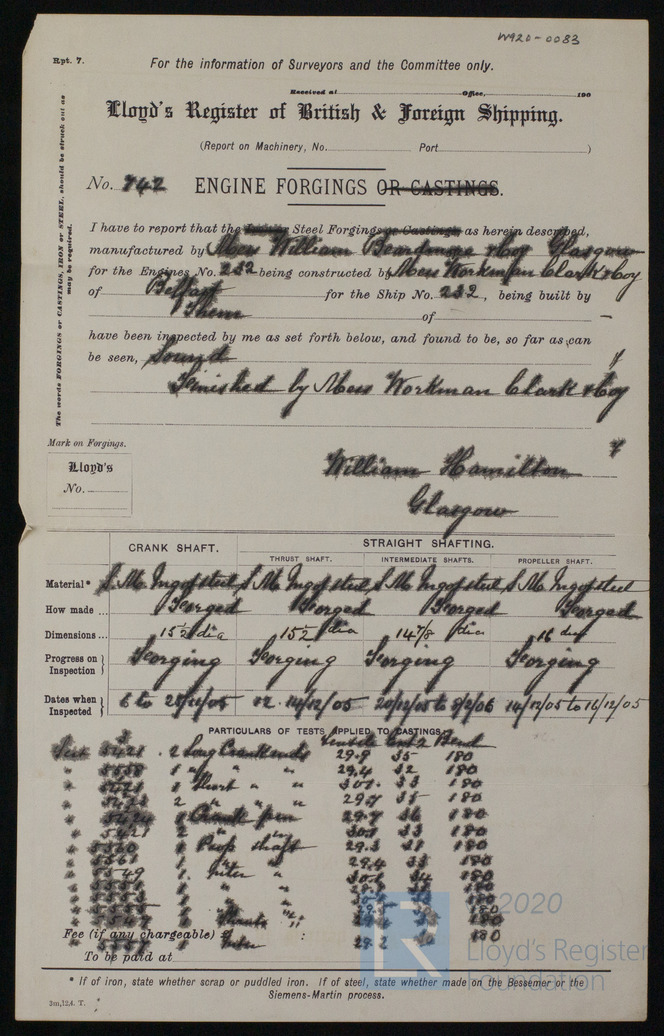 W920-0083
Rpt. 7.
For the information of Surveyors and the Committee only.
Received at Office, 190
Lloyd's Register of British & Foreign Shipping.
(Report on Machinery, No. Port )
No. 742 ENGINE FORGINGS OR CASTINGS.
The words FORGINGS or CASTINGS, IRON or STEEL, should be struck out as may be required.
I have to report that the Steel Forgings or Castings as herein described,
manufactured by Mess William Beardmore & Coy Glasgow
for the Engines No. 232 being constructed by Mess Workman Clark & Coy
of Belfast for the Ship No. 232, being built by
Them of
have been inspected by me as set forth below, and found to be, so far as can
be seen, Sound
Finished by Mess Workman Clark & Coy
Mark on Forgings.
Lloyd's
No.
William Hamilton
Glasgow
CRANK SHAFT. STRAIGHT SHAFTING.
THRUST SHAFT. INTERMEDIATE SHAFTS. PROPELLER SHAFT.
Material* S. M. Ingot steel S. M. Ingot steel S. M. Ingot steel S. M. Ingot steel
How made ... Forged Forged Forged Forged
Dimensions ... 15½ dia 15½ dia 14 7/8 dia 16 dia
Progress on Inspection Forging Forging Forging Forging
Dates when Inspected 6 to /05 12. 14/12/05 20/12/05 to 8/2/06 14/12/05 to 16/12/05
PARTICULARS OF TESTS APPLIED TO CASTINGS.
Tensile Bend
5421 2 Long Crank ends 29.9 35 180
1 " " 29.4 32 180
Short " " 180
2 " " " 29.7 35 180
Crank pin 29.7 36 180
5421 2 " " 33 180
Prop shaft 29.3 31 180
1 " " 29.4 33 180
49 1 Inter " 34 180
1 " " 180
1 " " 180
1 " " 180
1 " 180
Fee (if any chargeable) £
1 Inter 29.2 180
To be paid at
* If of iron, state whether scrap or puddled iron. If of steel, state whether made on the Bessemer or the
Siemens-Martin process.
2m,12,4. T.
©2020
Lloyd's Register
Foundation